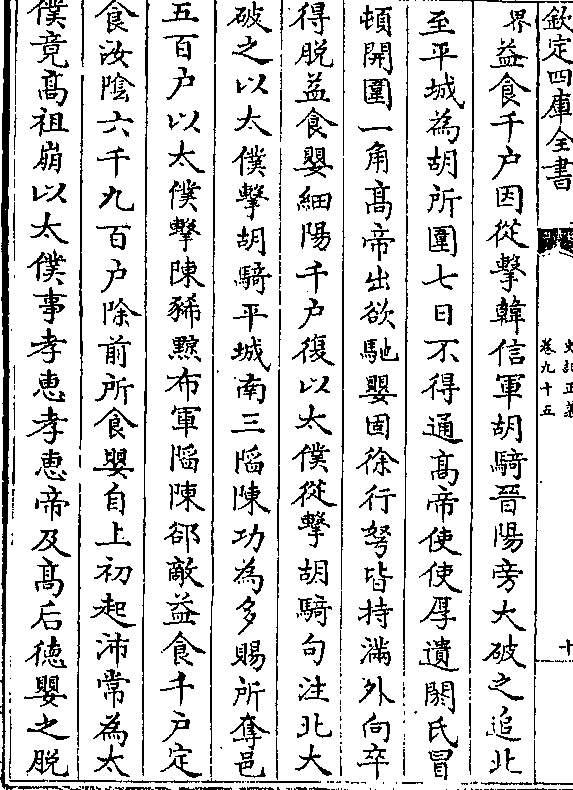 欽定四庫全書
史記正義
卷九十五
十
界益食千户因從擊韓信軍胡騎晉陽旁大破之追北
至平城為胡所圍七日不得通髙帝使使厚遺閼氏冒
頓開圍一角髙帝出欲馳嬰固徐行弩皆持滿外向卒
得脱益食嬰細陽千户復以太僕從擊胡騎句注北大
破之以太僕擊胡騎平城南三䧟陳功為多賜所奪邑
五百户以太僕擊陳豨黥布軍䧟陳郤敵益食千户定
食汝隂六千九百户除前所食嬰自上初起沛常為太
僕竟髙祖崩以太僕事孝惠孝惠帝及髙后徳嬰之脱